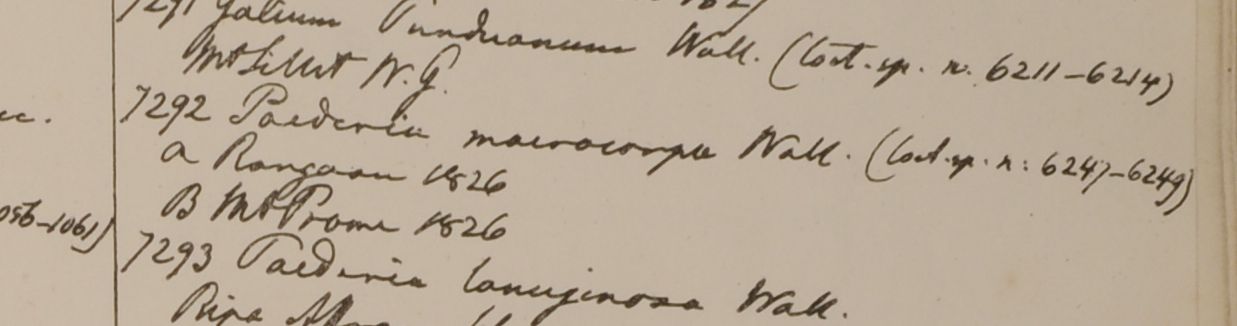 7291 Galium Punduanum Wall. (Cat. sp. n. 6211-6214)
Mt Sillet W. G.
7292 Paederia macrocarpa Wall. (Cat. sp. n. 6247-6249)
a Rangoon 1826
B Mt Prome 1826
7293 Paederia lanuginosa Wall.
Ripa
ec.
056-1061)